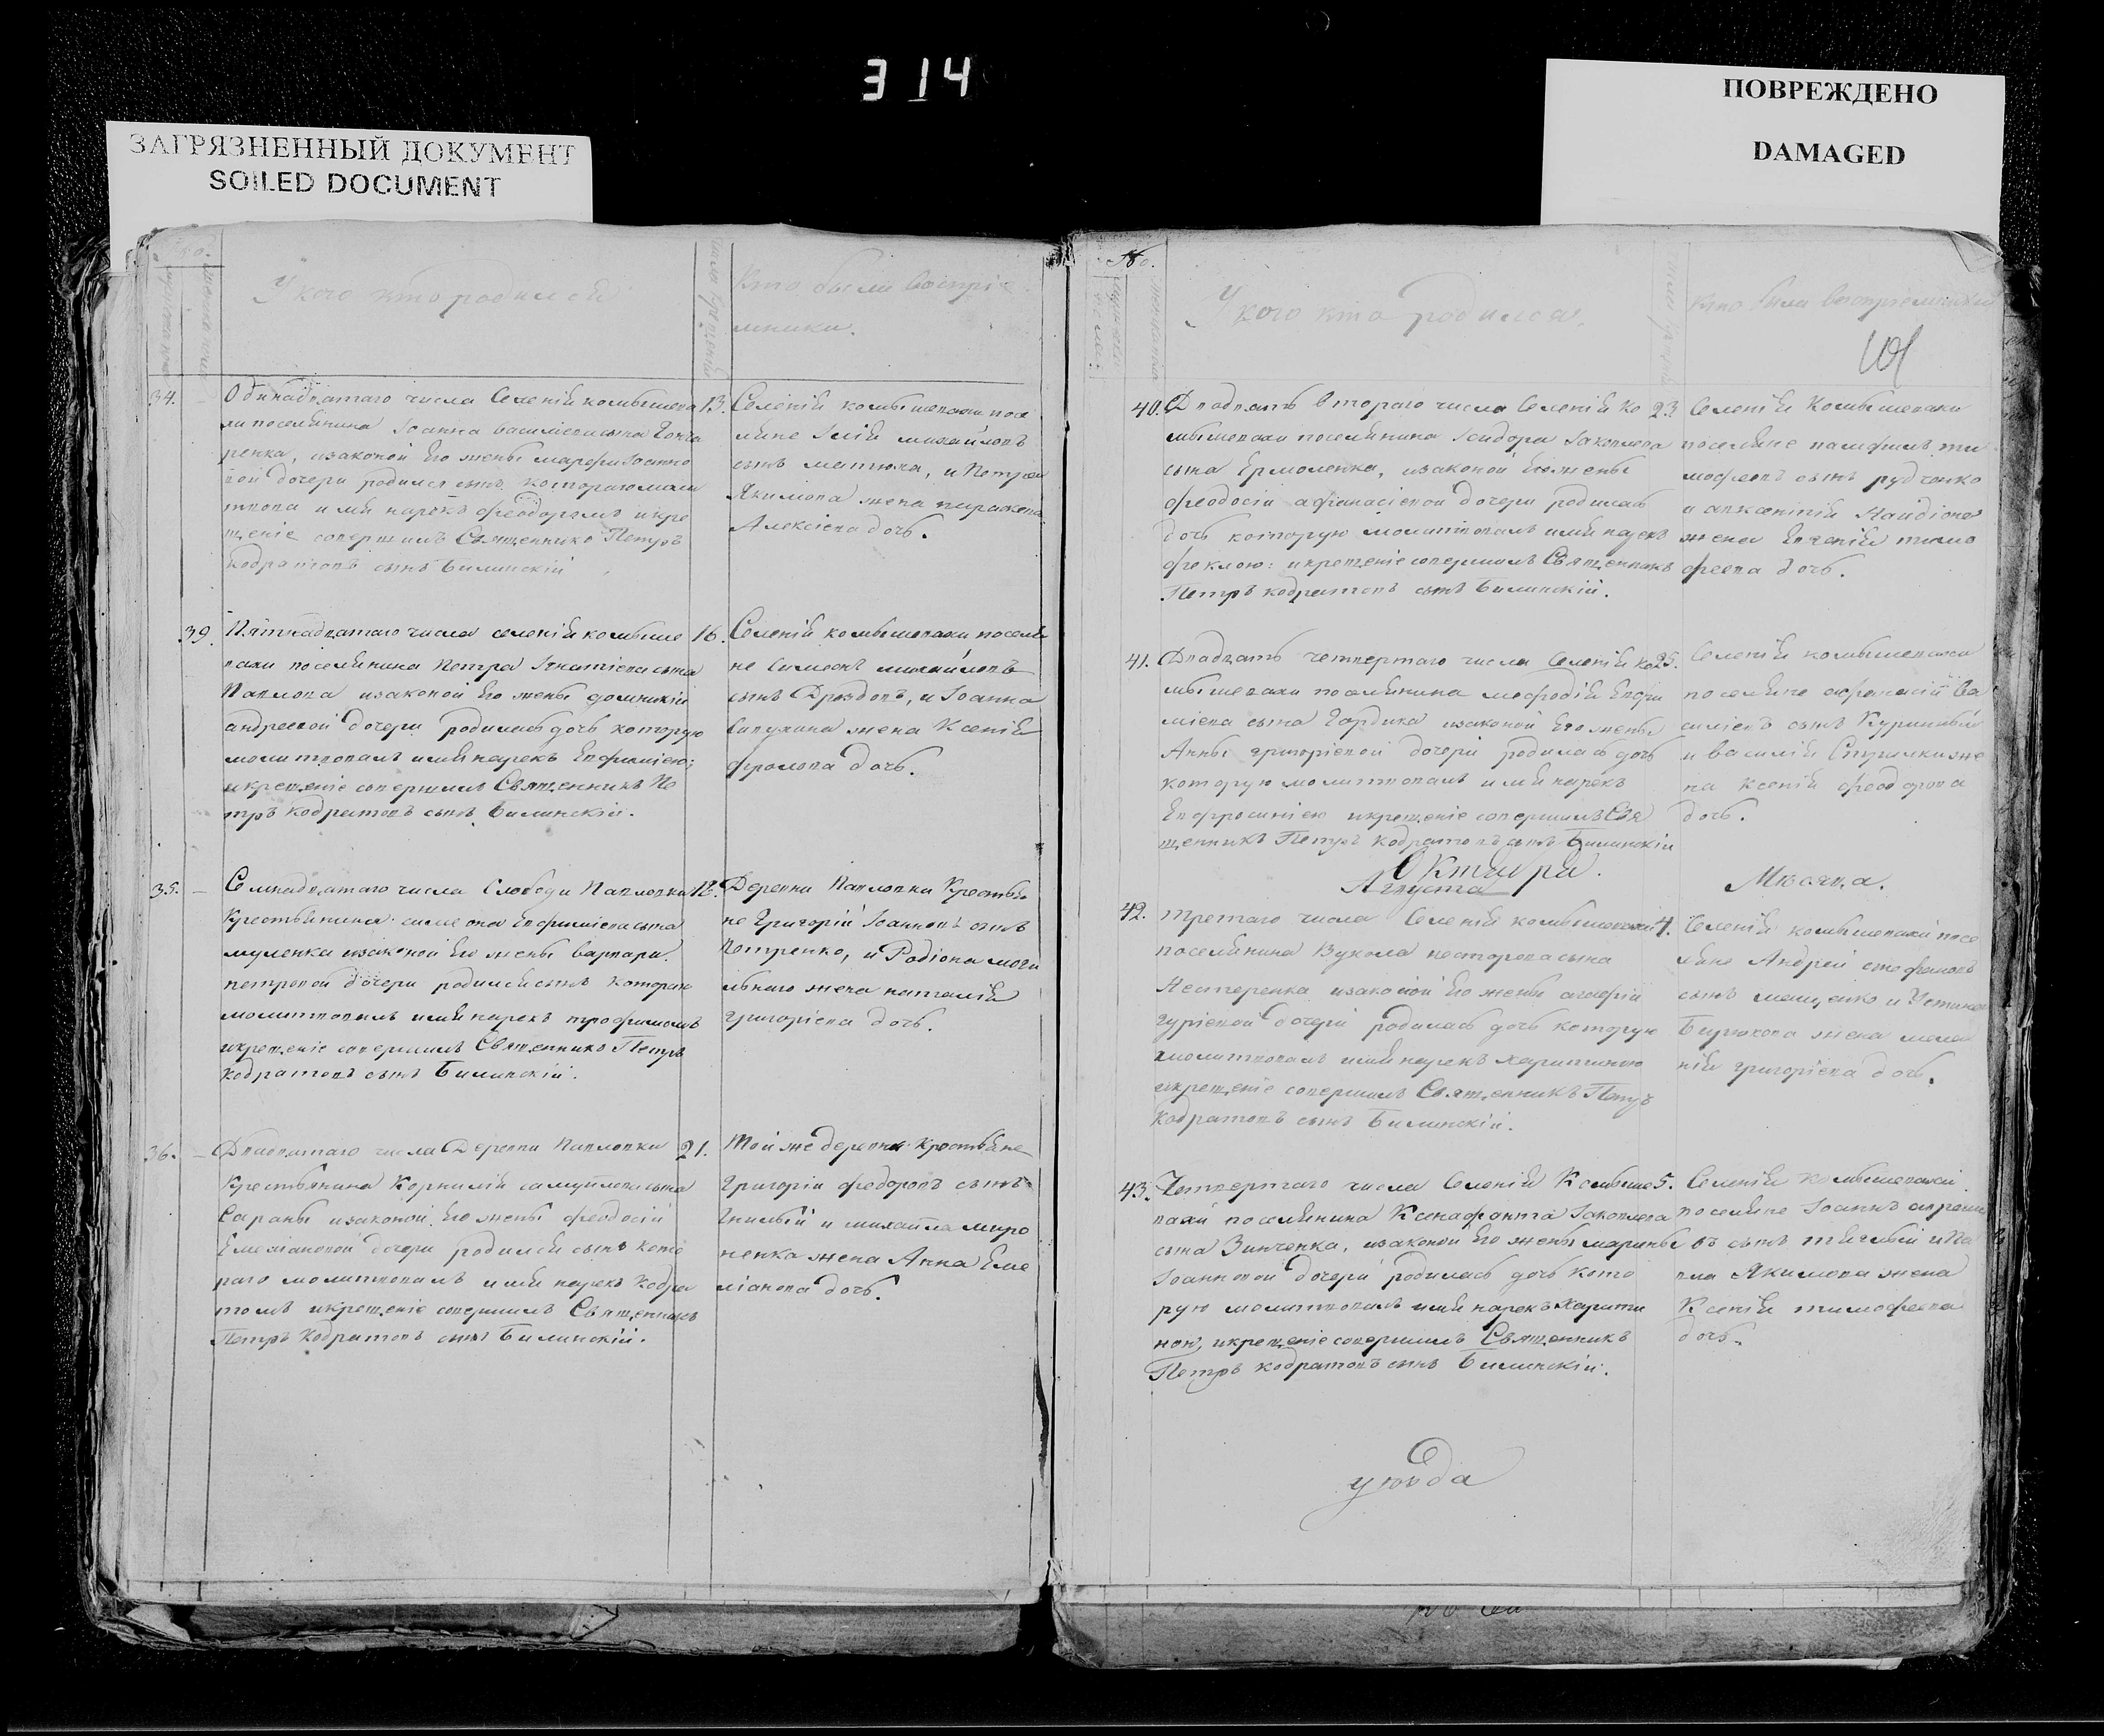 314
ЗАГРЯЗНЕННЫЙ ДОКУМЕНТ
SOILED DOCUMENT
ПОВРЕЖДЕНО
DAMAGED
У кого кто родился
Кто были воспріе
мники.
34.
Одинадцатаго числа Селенія комышева
хи поселянина Іоанна василіева сына Гонча
ренка, изаконой его жены марфы Іоанно
вой дочери родился сынъ, котораго моли
твова имя нарекъ феодоромъ икре
щеніе совершилъ Священникъ Петръ
Кодратовъ сынъ Билинскій
13.
Селенія комышевахи посе
ляне Илія михайловъ
сынъ матюха, и Петра
Якимова жена параскева
Алексіева дочь.
39.
Пятнадцатаго числа селенія комыше
вахи поселянина Петра Игнатіева сына
Павлова изаконой его жены домникіи
андреевой дочери родилась дочь которую
молитвовалъ имя нарекъ Евфиміею;
икрещеніе совершилъ Священникъ Пе
тръ Кодратовъ сынъ Билинскій.
16.
Селенія комышевахи поселя
не Симеонъ михайловъ
сынъ Дроздовъ, и Іоанна
жена Ксенія
фролова дочь.
35.
Семнадцатаго числа Слободи Павловки
Крестьянина симеона Евфиміева сына
муленка изаконой его жены варвари
петровой дочери родился сынъ котораго
молитвовалъ имя нарекъ трофимомъ
икрещеніе совершилъ Священникъ Петръ
Кодратовъ сынъ Билинскій.
18.
Деревни Павловки Крестья
не Григорій Іоанновъ сынъ
Петренко, и Родіона моги
льнаго жена наталія
григоріева дочь.
36.
Двадцатаго числа Деревни Павловки
Крестьянина Корнилія самуйлова сына
Сараны изаконой его жены феодосіи
Емеліановой дочери родился сынъ кото
раго молитвовалъ имя нарекъ Кодра
томъ икрещеніе совершилъ Священникъ
Петръ Кодратовъ сынъ Билинскій.
21.
Той же деревни Крестьяне
Григорій федоровъ сынъ
Гнилый и михаила миро
ненка жена Анна Еме
ліанова дочь.
У кого кто родился.
Кто были воспріемники
101
40.
Двадцать втораго числа Селенія Ко
мышевахи поселянина Исидора Іаковлева
сына Ермоленка, изаконой его жены
феодосіи афанасіевой дочери родилась
дочь которую молитвовалъ имя нарекъ
феклою: икрещеніе совершилъ Священникъ
Петръ кодратовъ сынъ Билинскій.
23
Селенія Комышевахи
поселяне памфилъ ти
мофеевъ сынъ рудченко
и
жена Евгенія тимо
феева дочь.
41.
Двадцать четвертаго числа Селенія Ко
мышевахи поселянина мефодія Евфи
міева сына Гардика изаконой его жены
Анны григоріевой дочери родилась дочь
которую молитвовалъ имя нарекъ
Евфросиніею икрещеніе совершилъ Свя
щенникъ Петръ Кодратовъ сынъ Билинскій
25.
Селенія комышевахи
поселяне афанасій Ва
силіевъ сынъ Куринный
и василія же
на Ксенія феодорова
дочь.
Октября.
Августа
Мѣсяца.
42.
третаго числа Селенія комышевахи
поселянина Вукола несторова сына
Нестеренка изаконой его жены агафіи
гуріевой дочери родилась дочь которую
молитвовалъ имя нарекъ харитиною
икрещеніе совершилъ Священникъ Петръ
Кодратовъ сынъ Билинскій.
4.
Селенія комышевахи посе
ляне Андрей стефановъ
сынъ мащенко и Устина
Бирюкова жена мела
нія григоріева дочь.
43.
Четвертаго числа Селенія Комыше
вахи поселянина Ксенафонта Іаковлева
сына Зинченка, изаконой его жены марины
Іоанновой дочери родилась дочь кото
рую молитвовалъ имя нарекъ Харити
ною, икрещеніе совершилъ Священникъ
Петръ кодратовъ сынъ Билинскій.
5.
Селенія комышевахи
поселяне Іоаннъ
въ сынъ и Па
вла Якимова жена
Ксенія тимофеева
дочь.
уѣзда